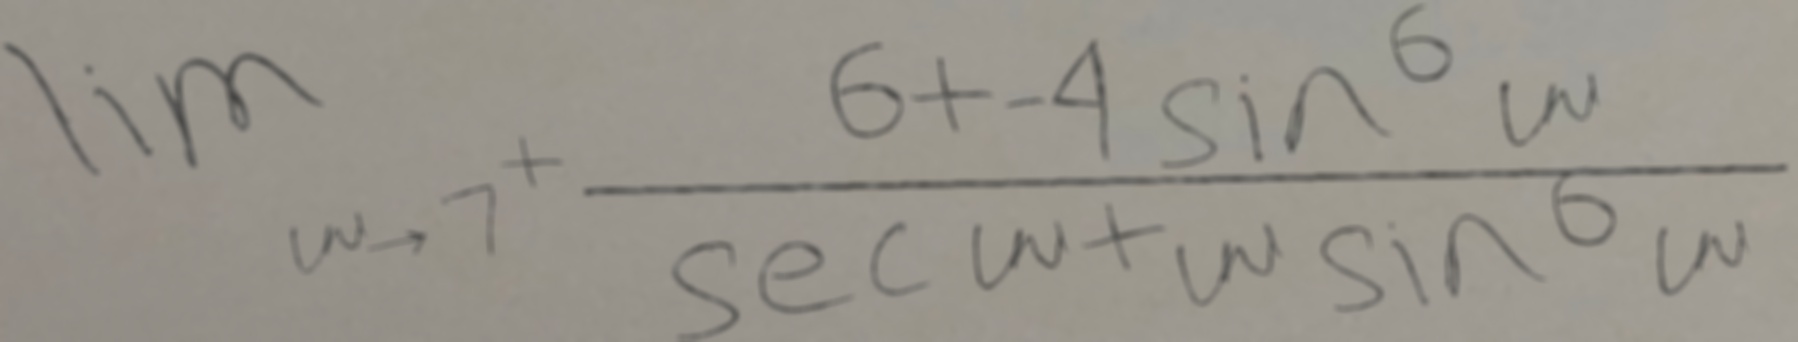 \lim_{w \to 7^+} \frac{6 + -4 \sin^6 w}{\sec w + w \sin^6 w}